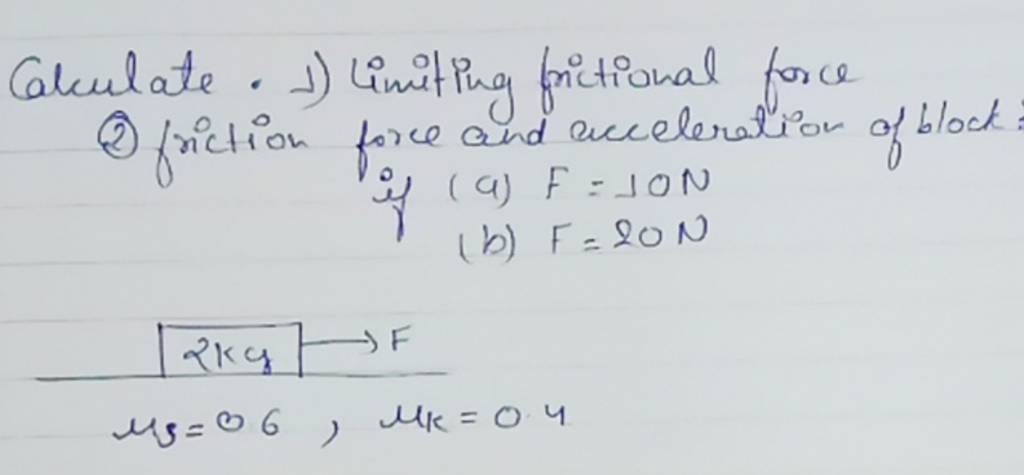 Calculate . 1) Limiting frictional force
② friction force and acceleration of block :
if (a) F = 10N
(b) F = 20N
2kg → F
μs = 0.6 , μk = 0.4